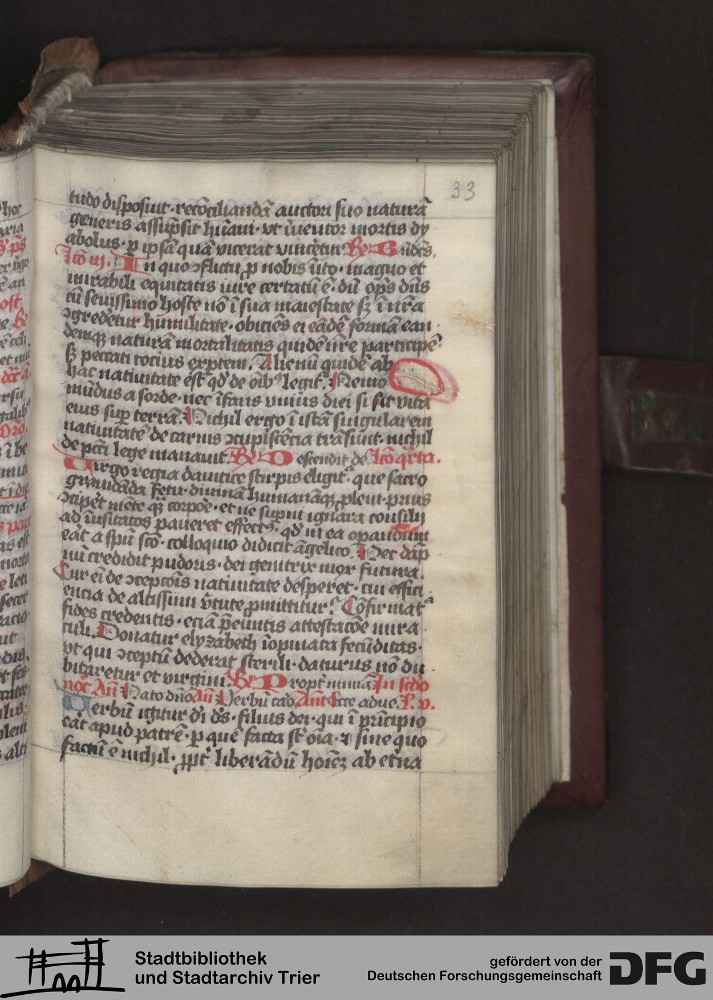 93
tudo disposuit · recōciliandā auctori suo naturā
generis assūpsit hūani · vt īuentor mortis dy
abolus · p ipsā quā vicerat vinceretur R̄ G
Lcō iij. In quo ɔflictu p nobis īito · magno et
mirabili equitatis iure certatū ē · dū op̄s dn̄s
cū seuissimo hoste nō ī sua maiestate sʒ ī nr̄a
ɔgredetur humilitate · obiciēs ei eādē formā ean
demqʒ naturā mortalitatis quidē nr̄e participē
sʒ peccati tocius exptem. Alienū quidē ab
hac nativitate est qd de oīb' legit'. Nemo
mūdus a sorde · nec īfans vnius diei si sit vita
eius sup terrā. Nichil ergo ī istā singularem
natiuitatē de carnis ɔcupiscēcia trāsiuit · nichil
de pcti lege manauit. R̄ Descendit de Lcō q̄rta.
Virgo regia dauitice stirpis eligit' · que sacro
grauidāda fetu · diuinā humanāqʒ plem · prius
ɔciperet mēte q̄ corpore · et ne supni ignara consilij
ad īusitatos paueret effectus · qd in ea opandum
erat a spū scō · colloquio didicit āgelico. Nec dāpnū
credidit pudoris · dei genitrix mox futura.
Cur eī de ɔcepcōis nouitate desperet · cui effici
encia de altissimi v̄tute pmittitur? Cōfirmat'
fides credentis · eciā p̄euntis attestacōe mira
culi. Donatur elyzabeth īopinata fecūditas ·
vt qui ɔceptū dederat sterili · daturus nō du
bitaretur et virgini. R̄ Propt' nimiā In scdo
noc̄ Añ Nato dn̄o Añ Verbū caro Añ Ecce adue. L. v.
Verbū igitur dī ds̄ · filius dei · qui ī principio
erat apud patrē · p quē facta st̄ oīa · ⁊ sine quo
factū ē nichil · ppt' liberādū hoīeʒ ab etna
Stadtbibliothek
und Stadtarchiv Trier
gefördert von der
Deutschen Forschungsgemeinschaft
DFG